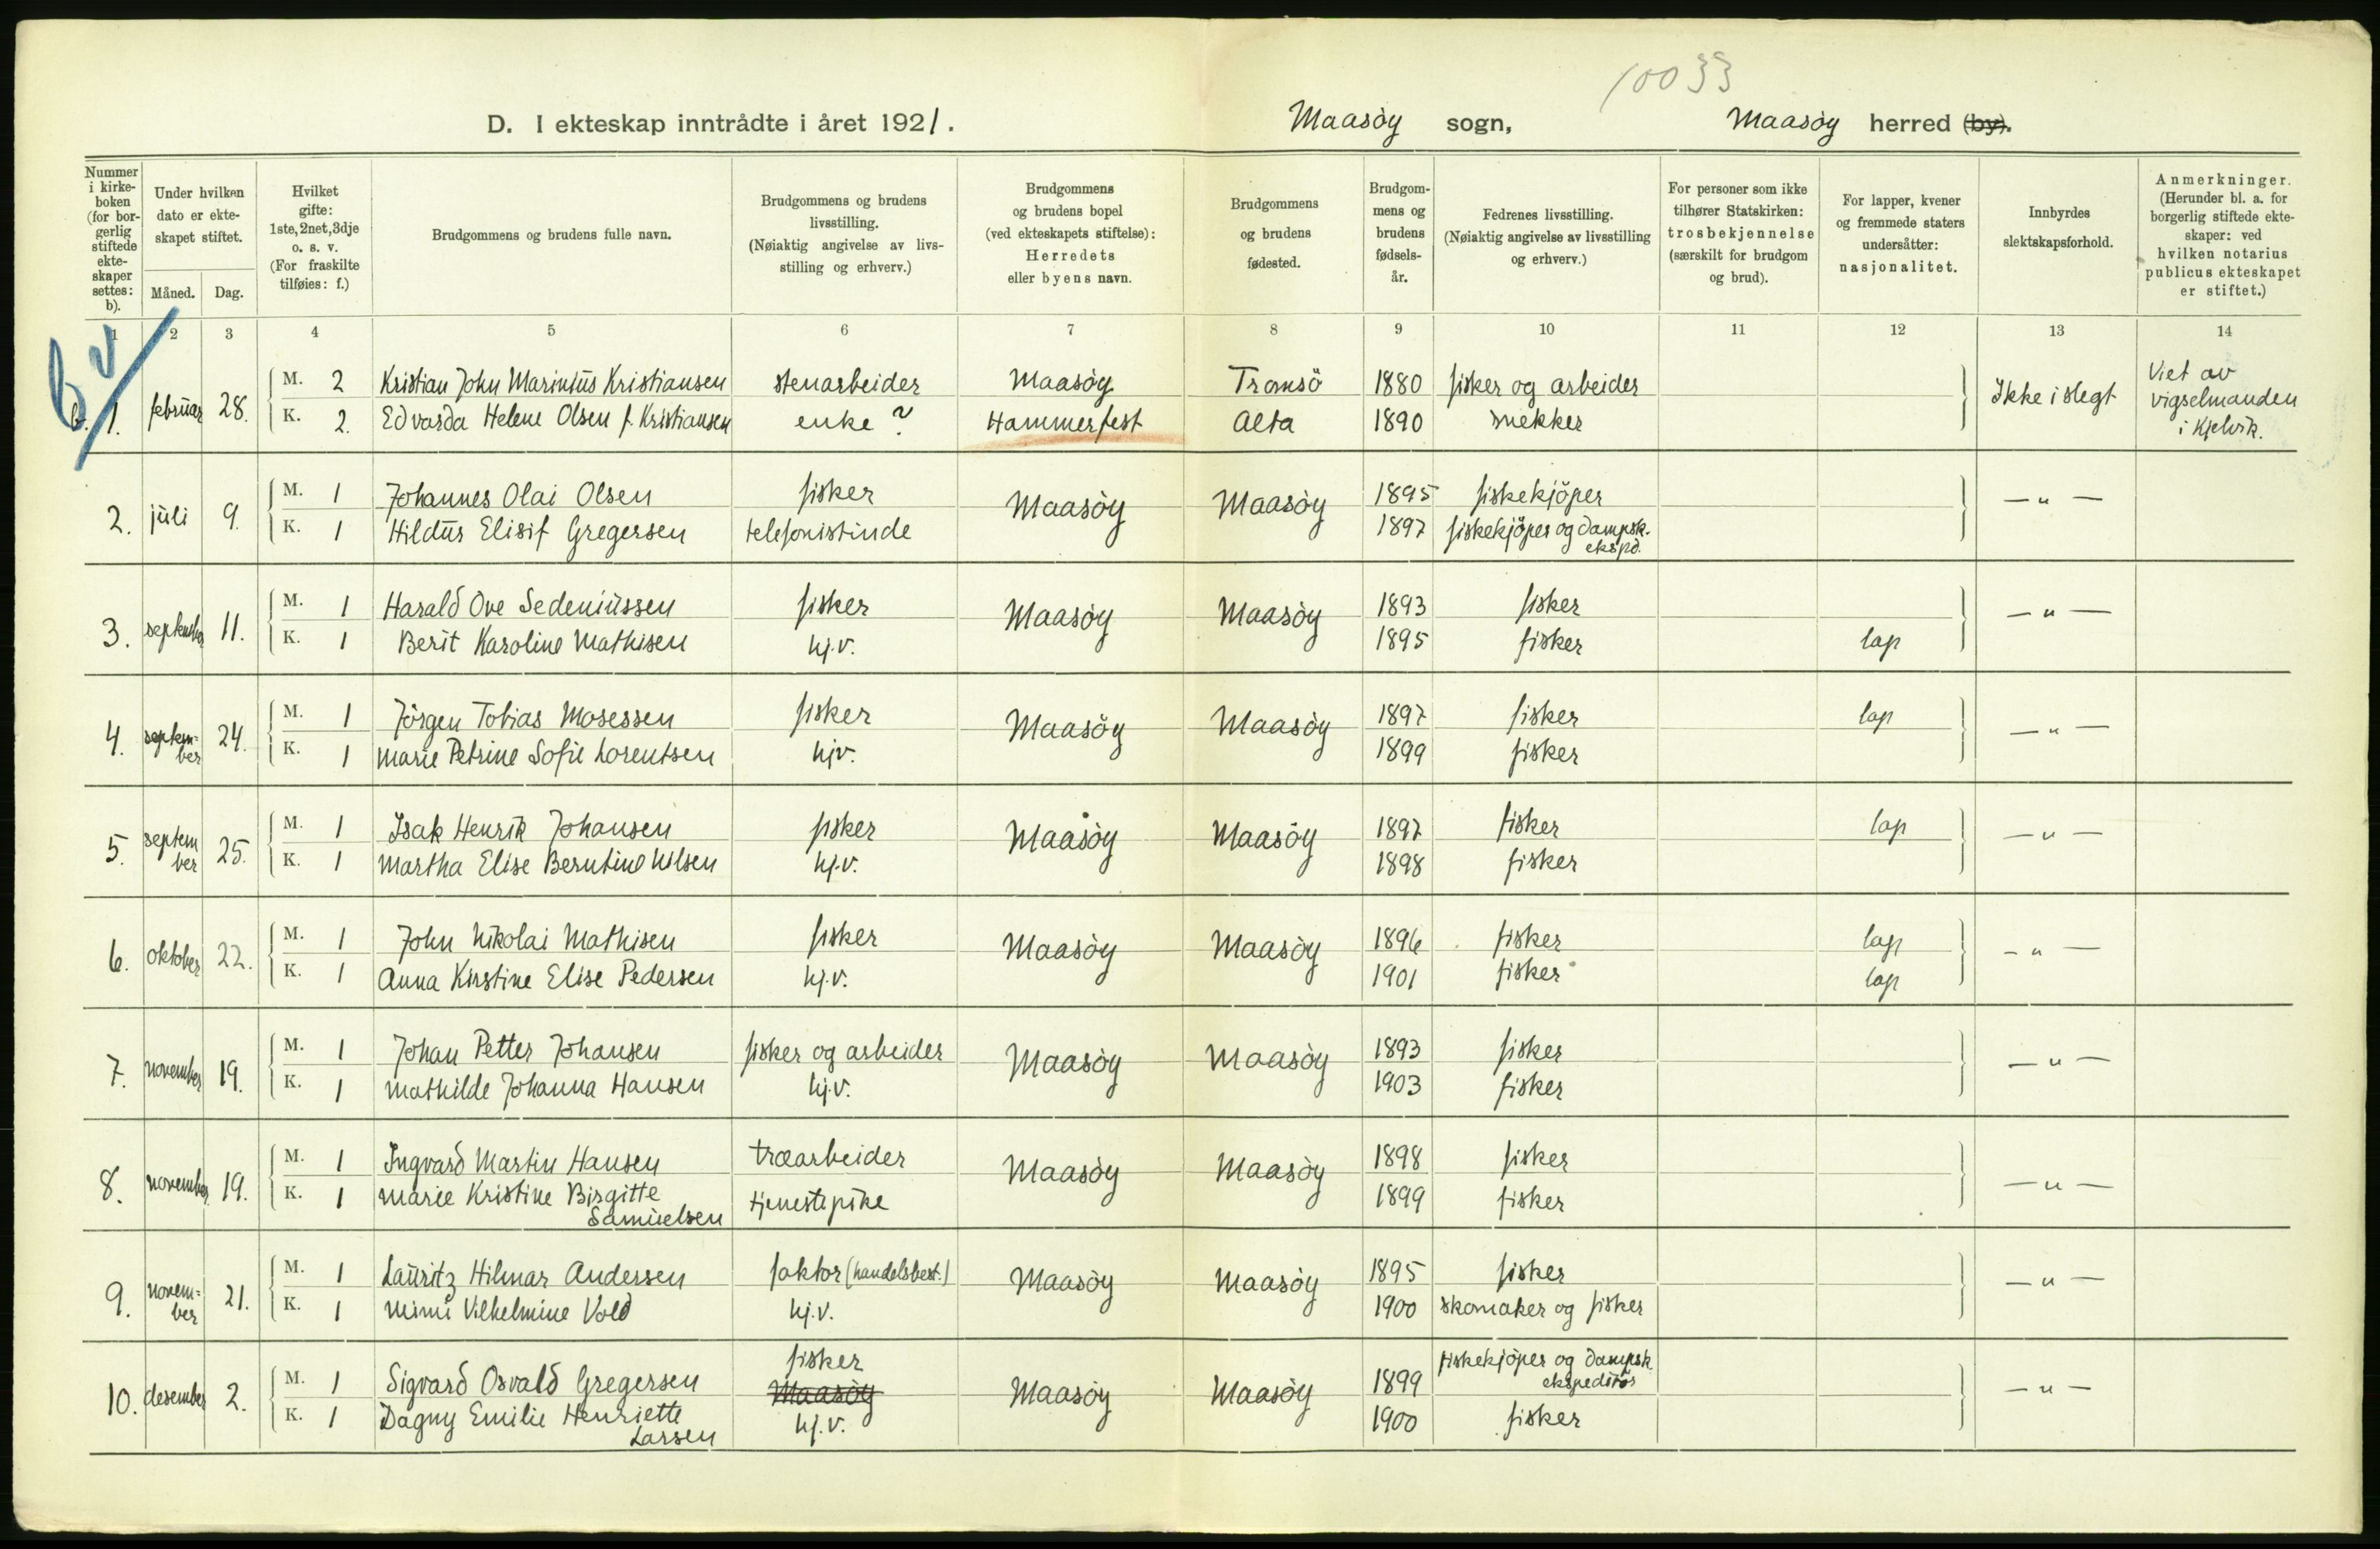 10033
D. I ekteskap inntrådte i året 1921. Maasöy sogn, Maasöy herred (by).
Nummer i kirke-boken (for bor-gerlig stiftede ekte-skaper settes: b).
Under hvilken dato er ekte-skapet stiftet.
Måned. Dag.
Hvilket gifte: 1ste, 2net, 3dje o. s. v. (For fraskilte tilføies: f.)
Brudgommens og brudens fulle navn.
Brudgommens og brudens livsstilling. (Nøiaktig angivelse av livs-stilling og erhverv.)
Brudgommens og brudens bopel (ved ekteskapets stiftelse): Herredets eller byens navn.
Brudgommens og brudens fødested.
Brudgom-mens og brudens fødsels-år.
Fedrenes livsstilling. (Nøiaktig angivelse av livsstilling og erhverv.)
For personer som ikke tilhører Statskirken: trosbekjennelse (særskilt for brudgom og brud).
For lapper, kvener og fremmede staters undersåtter: nasjonalitet.
Innbyrdes slektskapsforhold.
Anmerkninger. (Herunder bl. a. for borgerlig stiftede ekte-skaper: ved hvilken notarius publicus ekteskapet er stiftet.)
1 2 3 4 5 6 7 8 9 10 11 12 13 14
b. v
b. 1. februar 28. M. 2 Kristian John Marinius Kristiansen stenarbeider Maasöy Tromsö 1880 fisker og arbeider Ikke i slegt Viet av vigselmanden i Kjelvik.
K. 2. Edvarda Helene Olsen f. Kristiansen enke ? Hammerfest Alta 1890 snekker
2. juli 9. M. 1 Johannes Olai Olsen fisker Maasöy Maasöy 1895 fiskekjöper — " —
K. 1 Hildur Elisif Gregersen telefonistinde 1897 fiskekjöper og dampsk. ekspd.
3. september 11. M. 1 Harald Ove Sedeniussen fisker Maasöy Maasöy 1893 fisker — " —
K. 1 Berit Karoline Mathisen hj.v. 1895 fisker lap
4. septem-ber 24. M. 1 Jörgen Tobias Mosessen fisker Maasöy Maasöy 1897 fisker lap — " —
K. 1 Marie Petrine Sofie Lorentsen hjv. 1899 fisker
5. septem ber 25. M. 1 Isak Henrik Johansen fisker Maasöy Maasöy 1897 fisker lap — " —
K. 1 Martha Elise Berntine Nilsen hj.v. 1898 fisker
6. oktober 22. M. 1 John Nikolai Mathisen fisker Maasöy Maasöy 1896 fisker lap — " —
K. 1 Anna Kirstine Elise Pedersen hj.v. 1901 fisker lap
7. november 19. M. 1 Johan Petter Johansen fisker og arbeider Maasöy Maasöy 1893 fisker — " —
K. 1 Mathilde Johanna Hansen hj.v. 1903 fisker
8. november 19. M. 1 Ingvard Martin Hansen træarbeider Maasöy Maasöy 1898 fisker — " —
K. 1 Marie Kristine Birgitte Samuelsen tjenestepike 1899 fisker
9. novem-ber 21. M. 1 Lauritz Hilmar Andersen faktor (handelsbest.) Maasöy Maasöy 1895 fisker — " —
K. 1 Mimi Vilhelmine Vold hj.v. 1900 skomaker og fisker
10. desember 2. M. 1 Sigvard Osvald Gregersen fisker Maasöy Maasöy Maasöy 1899 fiskekjöper og dampsk ekspeditör — " —
K. 1 Dagny Emilie Henriette Larsen hj.v. 1900 fisker